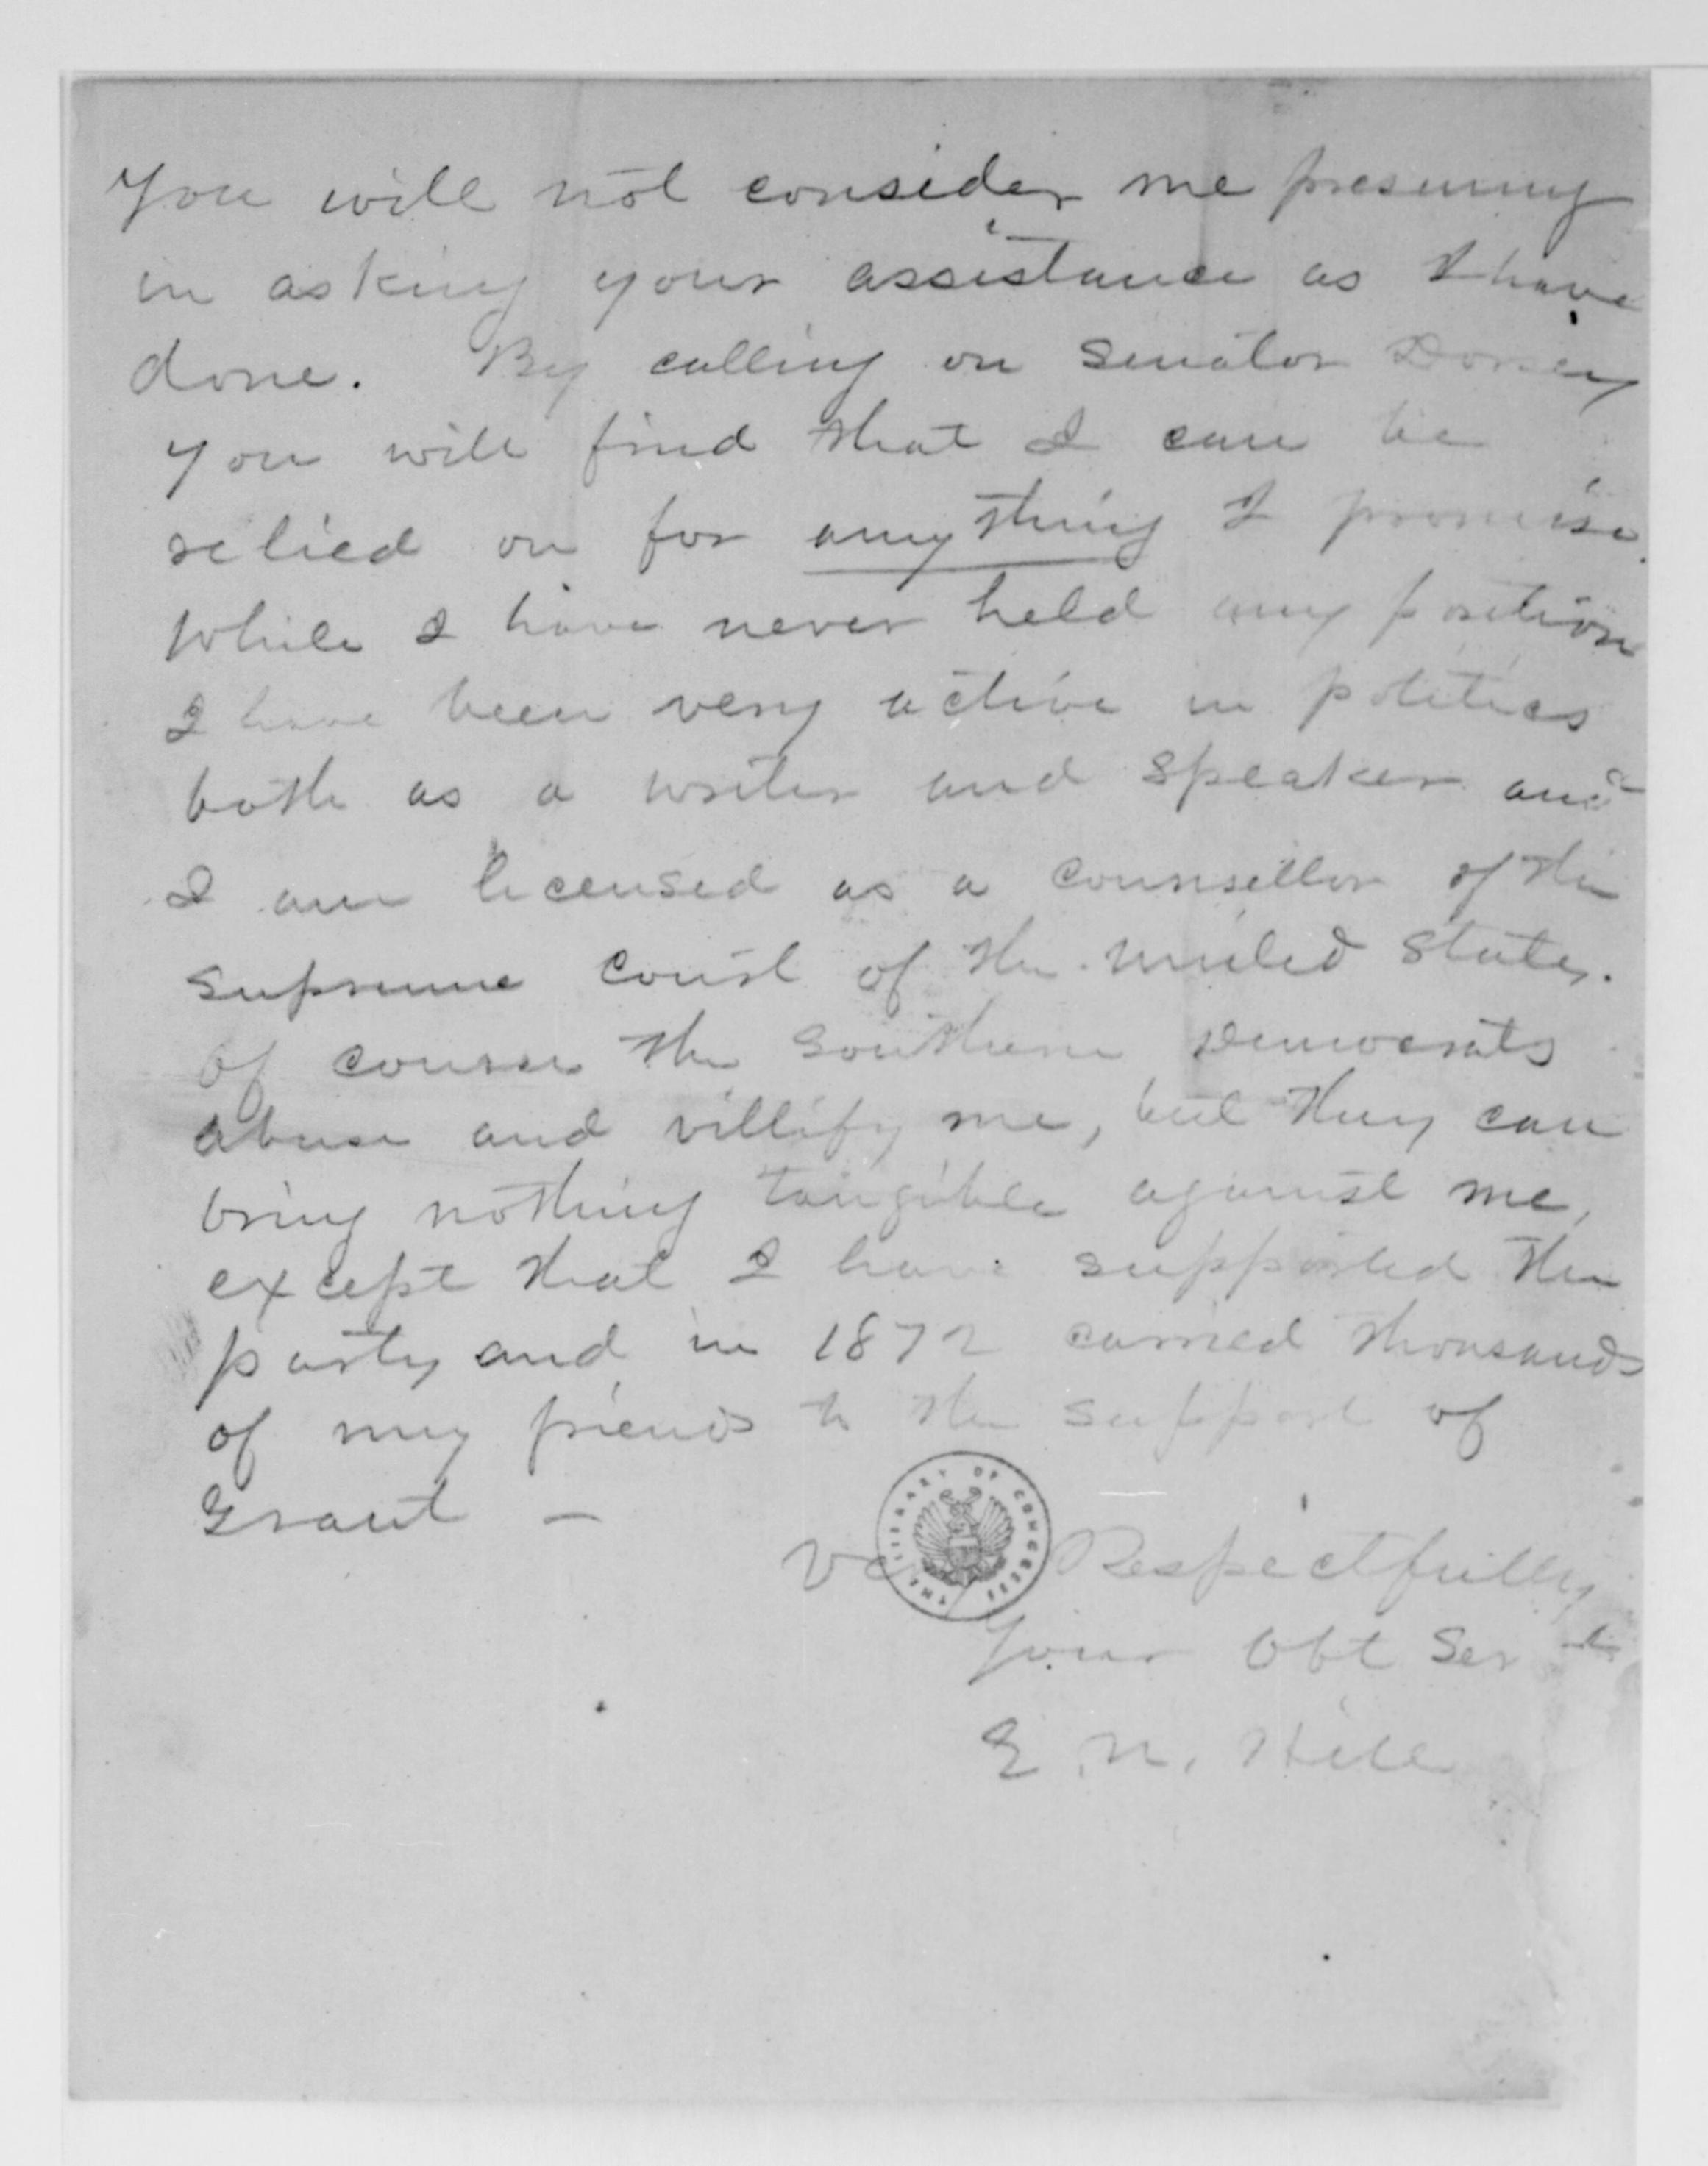 You will not consider me presuming
in asking your assistance as I have
done. By calling on Senator Dorsey
you will find that I can be
relied on for anything I promise.
While I have never held any position
I have been very active in politics
both as a writer and speaker and
I am licensed as a counsellor of the
Supreme Court of the United States.
Of course the Southern Democrats
abuse and villify me, but they can
bring nothing tangible against me,
except that I have supported the
party and in 1872 carried thousands
of my friends to the support of
Grant —
Very Respectfully
Your Obt Servt
E. N. Hill
THE LIBRARY OF CONGRESS